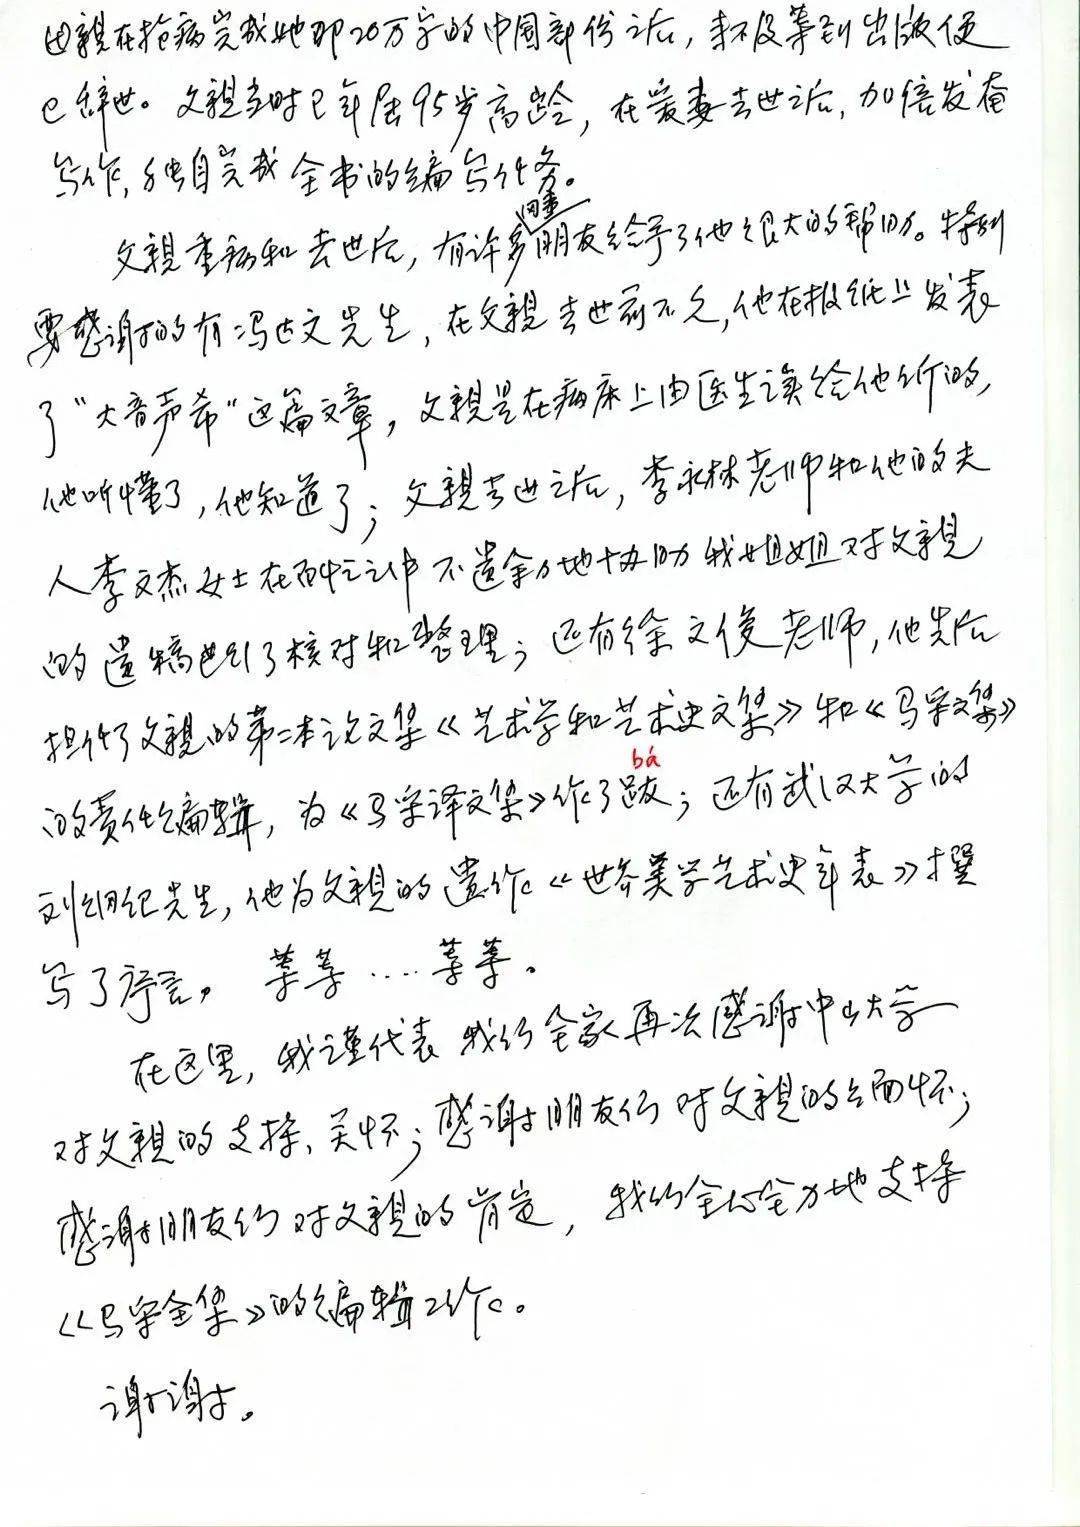 母親在抢病完成她那20万字的中国部份之后，来不及等到出版便
已辞世。父親当时已年届95岁高龄，在爱妻去世之后，加倍发奋
写作，独自完成全书的编写任务。
父親重病和去世后，有许多同事朋友给予了他很大的帮助。特别
要感谢的有冯达文先生，在父親去世前不久，他在报纸上发表
了“大音声希”这篇文章，父親是在病床上由医生读给他听的，
他听懂了，他知道了；父親去世之后，李永林老师和他的夫
人李文杰女士在百忙之中不遗余力地协助我姐姐对父親
的遗稿进行了核对和整理；还有徐文俊老师，他先后
担任了父親的第二本论文集《艺术学和艺术史文集》和《马采文集》
bá
的责任编辑，为《马采译文集》作了跋；还有武汉大学的
刘纲纪先生，他为父親的遗作《世界美学艺术史年表》撰
写了序言。等等……等等。
在这里，我谨代表我们全家再次感谢中山大学
对父親的支持、关怀；感谢朋友们对父親的缅怀；
感谢朋友们对父親的肯定，我们全心全力地支持
《马采全集》的编辑工作。
谢谢。